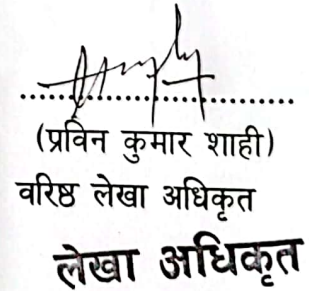 (प्रविन कुमार शाही)
वरिष्ठ लेखा अधिकृत
लेखा अधिकृत